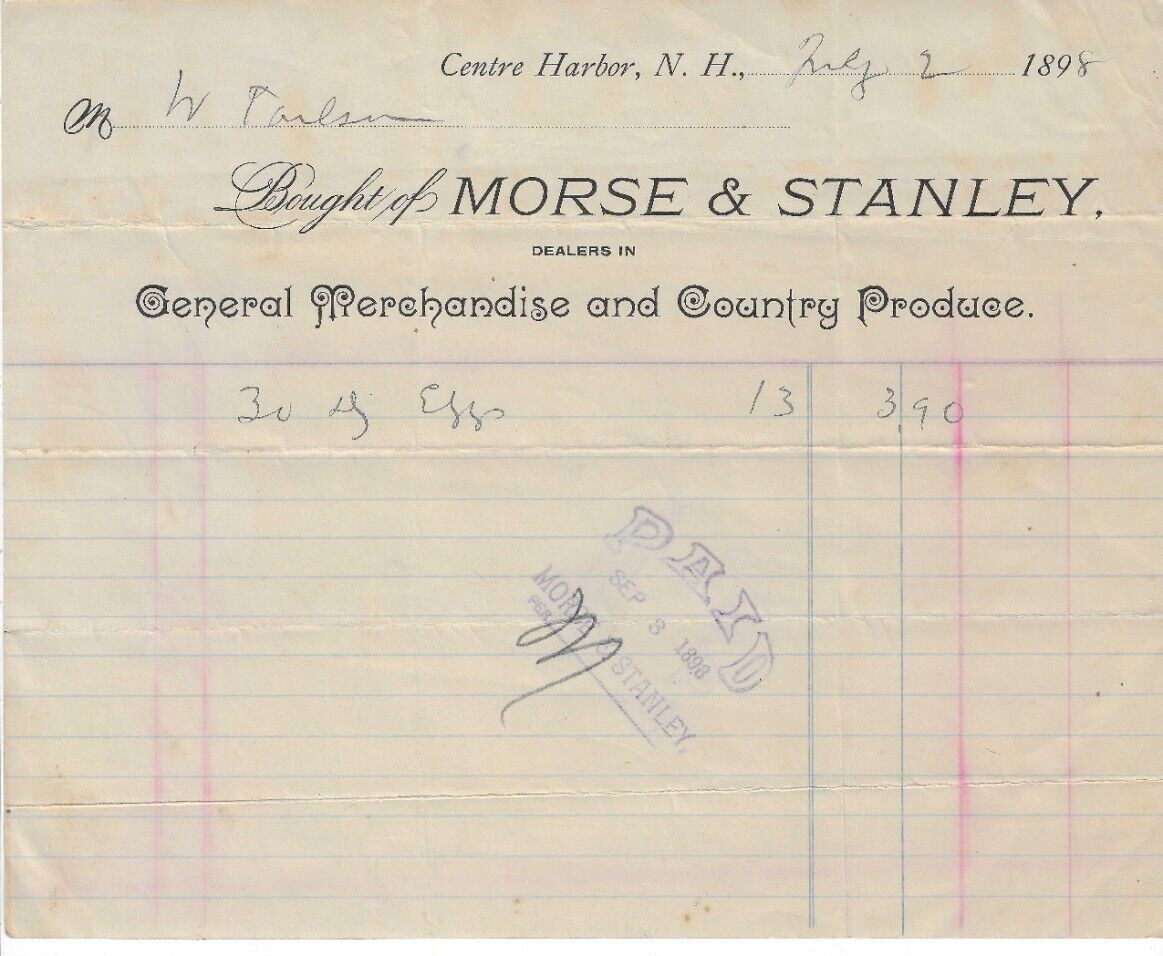 Centre Harbor, N. H., July 2 1898
M W
Bought of MORSE & STANLEY,
DEALERS IN
General Merchandise and Country Produce.
30 dz Eggs 13 3,90
PAID
SEP 3 1898
MORSE & STANLEY,
PER